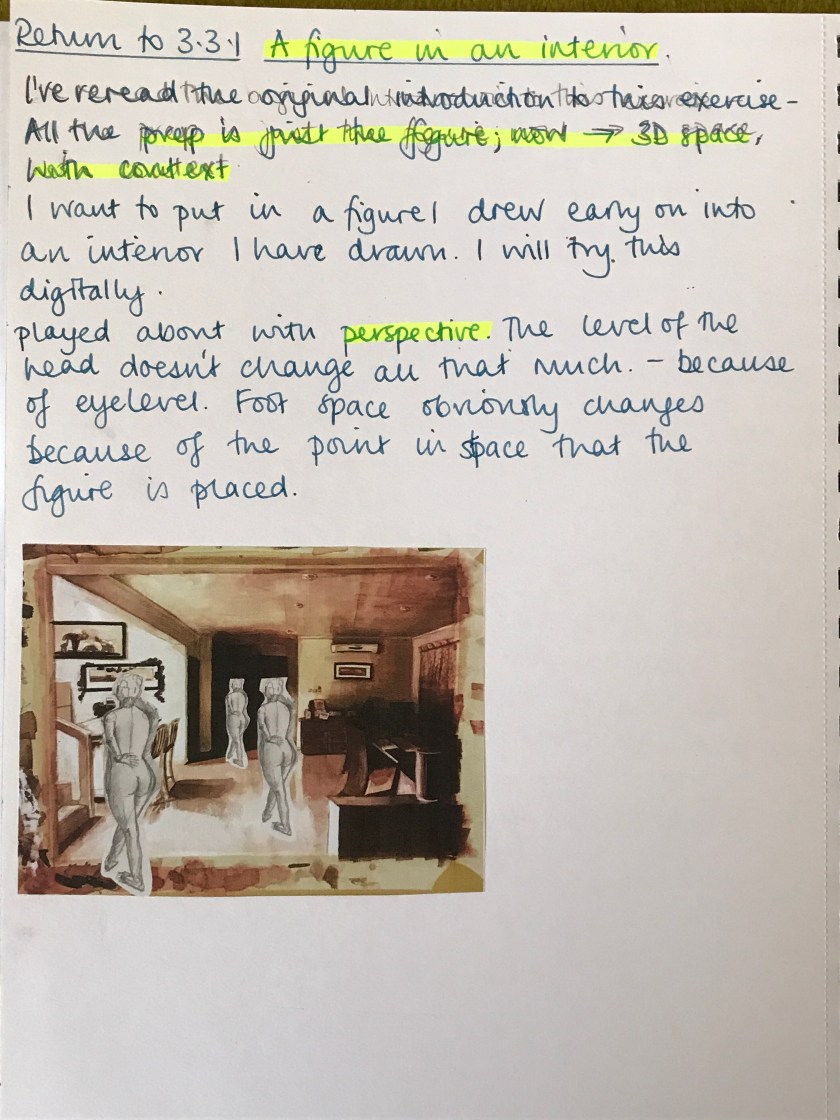 Return to 3.3.1 A figure in an interior.
I've reread the original introduction to this exercise -
All the prep is just the figure; now → 3D space,
with context
I want to put in a figure I drew early on into
an interior I have drawn. I will try this
digitally.
played about with perspective. The level of the
head doesn't change all that much. - because
of eyelevel. Foot space obviously changes
because of the point in space that the
figure is placed.